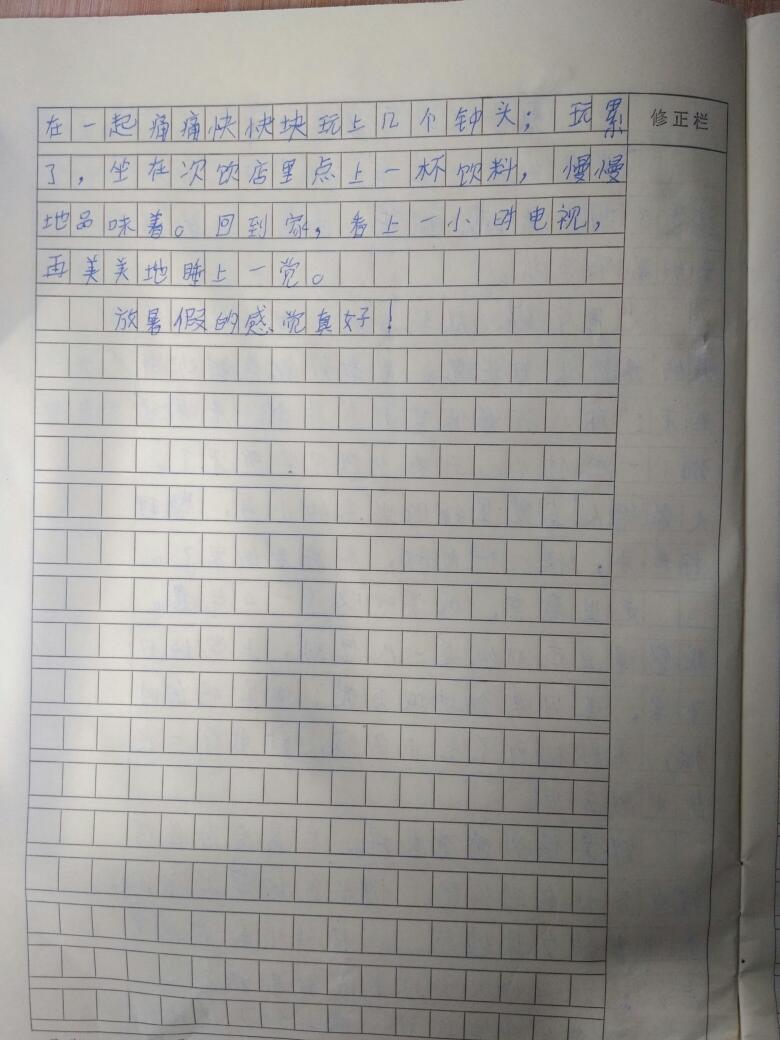 在一起痛痛快快块玩上几个钟头；玩累
修正栏
了，坐在次饮店里点上一杯饮料，慢慢
地品味着。回到家，看上一小时电视，
再美美地睡上一觉。
放暑假的感觉真好！